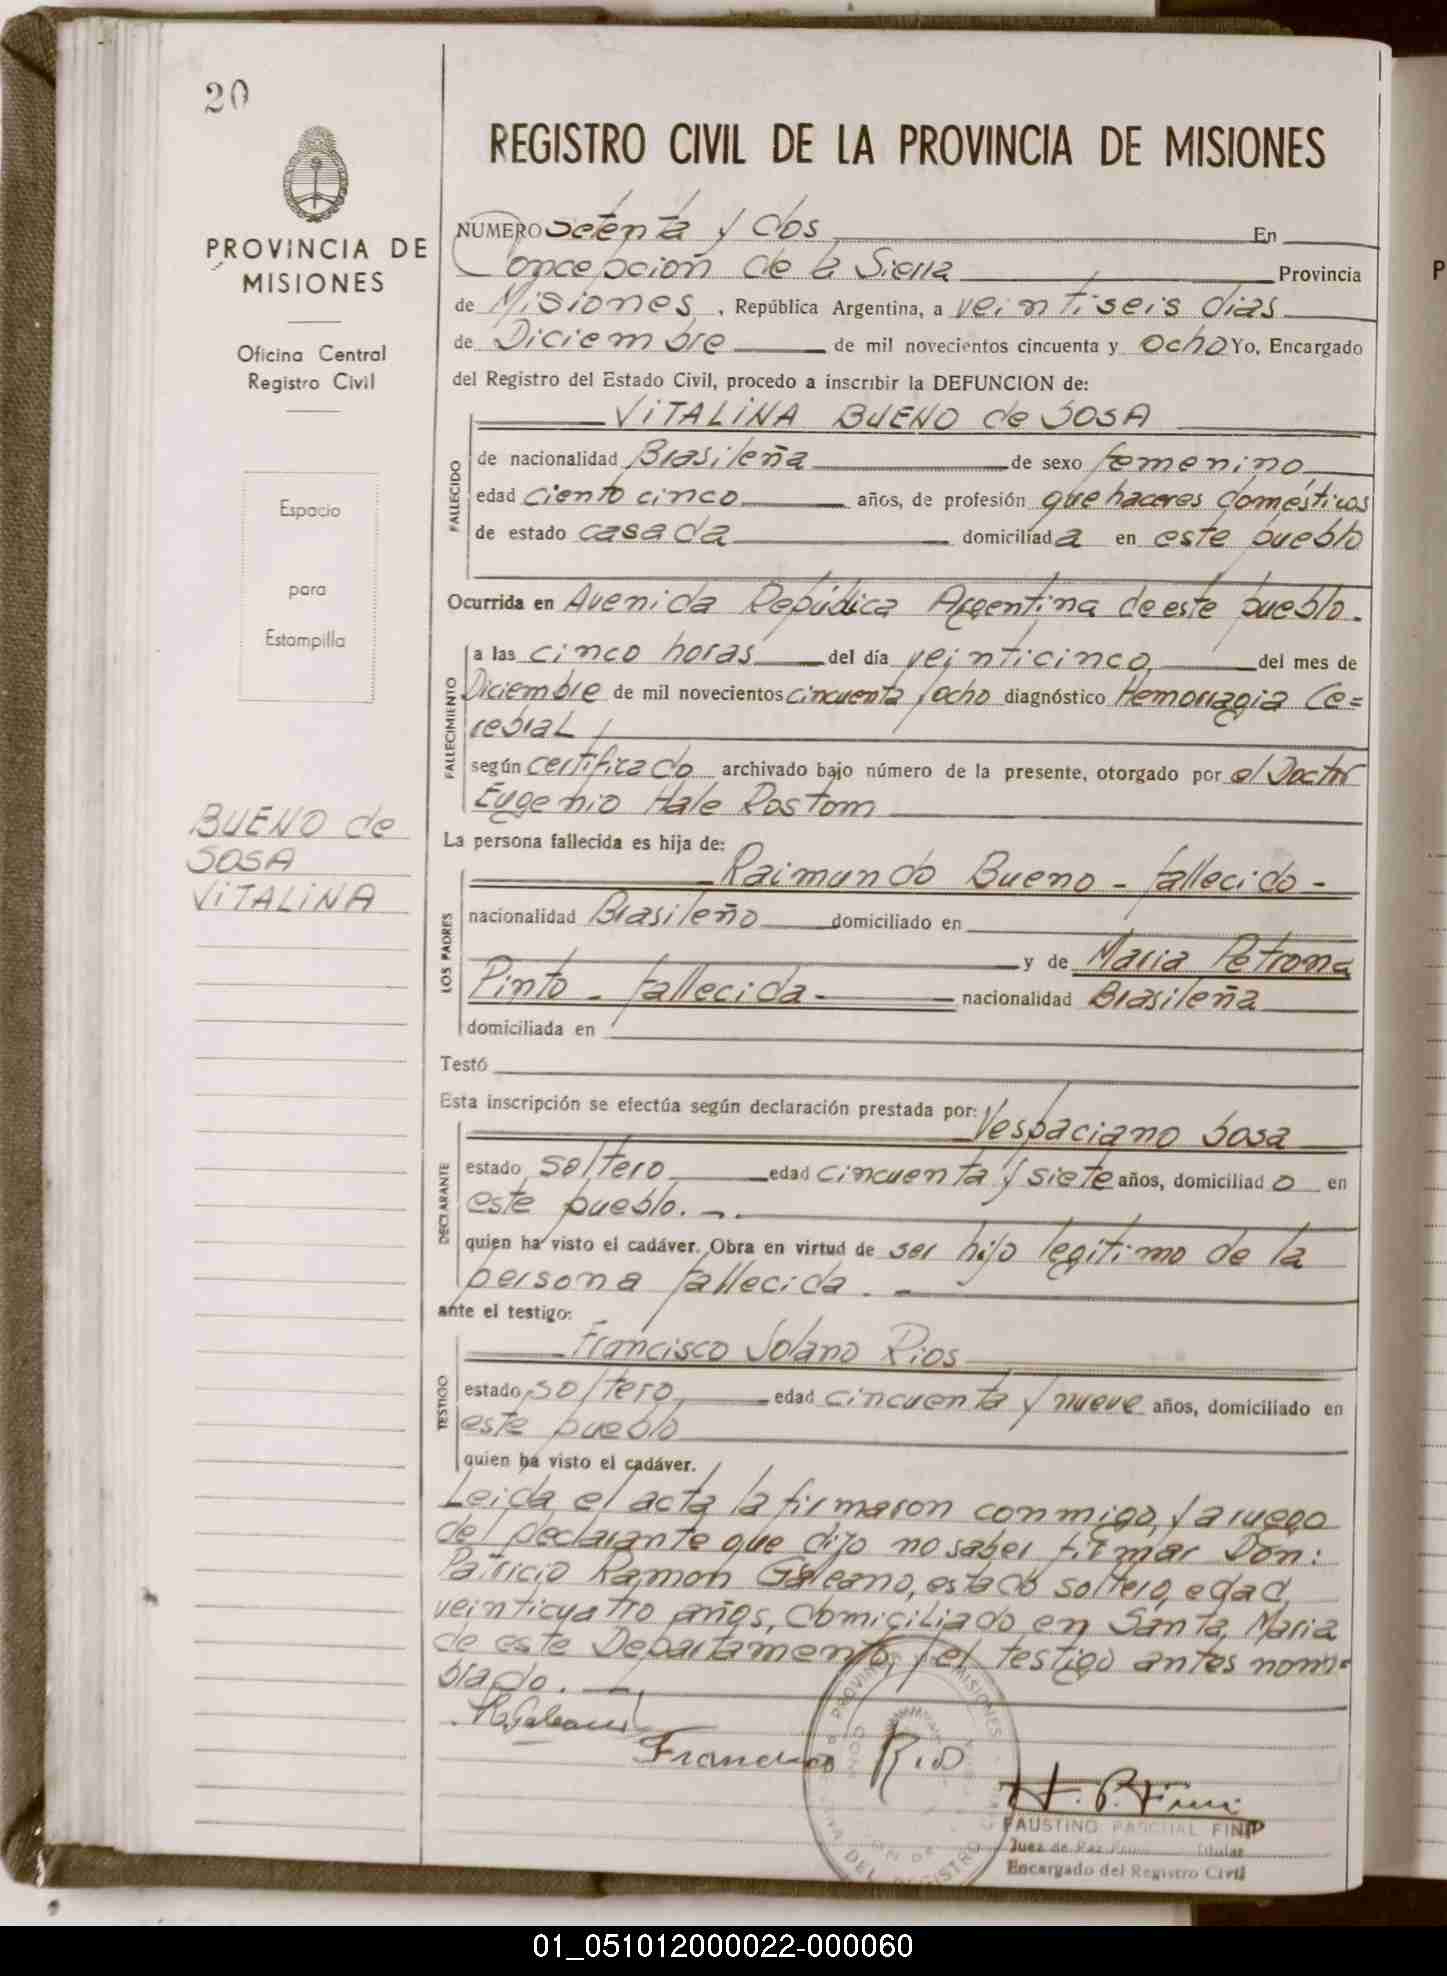 20
PROVINCIA DE
MISIONES
Oficina Central
Registro Civil
Espacio
para
Estampilla
BUENO de
SOSA
VITALINA
REGISTRO CIVIL DE LA PROVINCIA DE MISIONES
NUMERO Setenta y dos En
Concepción de la Sierra Provincia
de Misiones, República Argentina, a veintiseis dias
de Diciembre de mil novecientos cincuenta y ocho Yo, Encargado
del Registro del Estado Civil, procedo a inscribir la DEFUNCION de:
VITALINA BUENO de SOSA
FALLECIDO
de nacionalidad Brasileña de sexo femenino
edad ciento cinco años, de profesión que haceres domésticos
de estado casada domiciliada en este pueblo
Ocurrida en Avenida República Argentina de este pueblo.
FALLECIMIENTO
a las cinco horas del día veinticinco del mes de
Diciembre de mil novecientos cincuenta y ocho diagnóstico Hemorragia Ce=
rebral
según certificado archivado bajo número de la presente, otorgado por el Doctor
Eugenio Hale Rostom
La persona fallecida es hija de:
LOS PADRES
Raimundo Bueno - fallecido -
nacionalidad Brasileño domiciliado en
y de Maria Petrona
Pinto - fallecida - nacionalidad Brasileña
domiciliada en
Testó
Esta inscripción se efectúa según declaración prestada por:
DECLARANTE
Vespaciano Sosa
estado soltero edad cincuenta y siete años, domiciliado en
este pueblo. -.
quien ha visto el cadáver. Obra en virtud de ser hijo legítimo de la
persona fallecida. -
ante el testigo:
TESTIGO
Francisco Solano Rios
estado soltero edad cincuenta y nueve años, domiciliado en
este pueblo
quien ha visto el cadáver.
Leida el acta la firmaron conmigo, y a ruego
del declarante que dijo no saber firmar Don:
Patricio Ramon Galeano, estado soltero, edad
veinticuatro años, domiciliado en Santa Maria
de este Departamento, y el testigo antes nom=
brado. -
Galeano
Francisco Rios
FAUSTINO PASCUAL FINI
Juez de Paz Titular
Encargado del Registro Civil
01_051012000022-000060